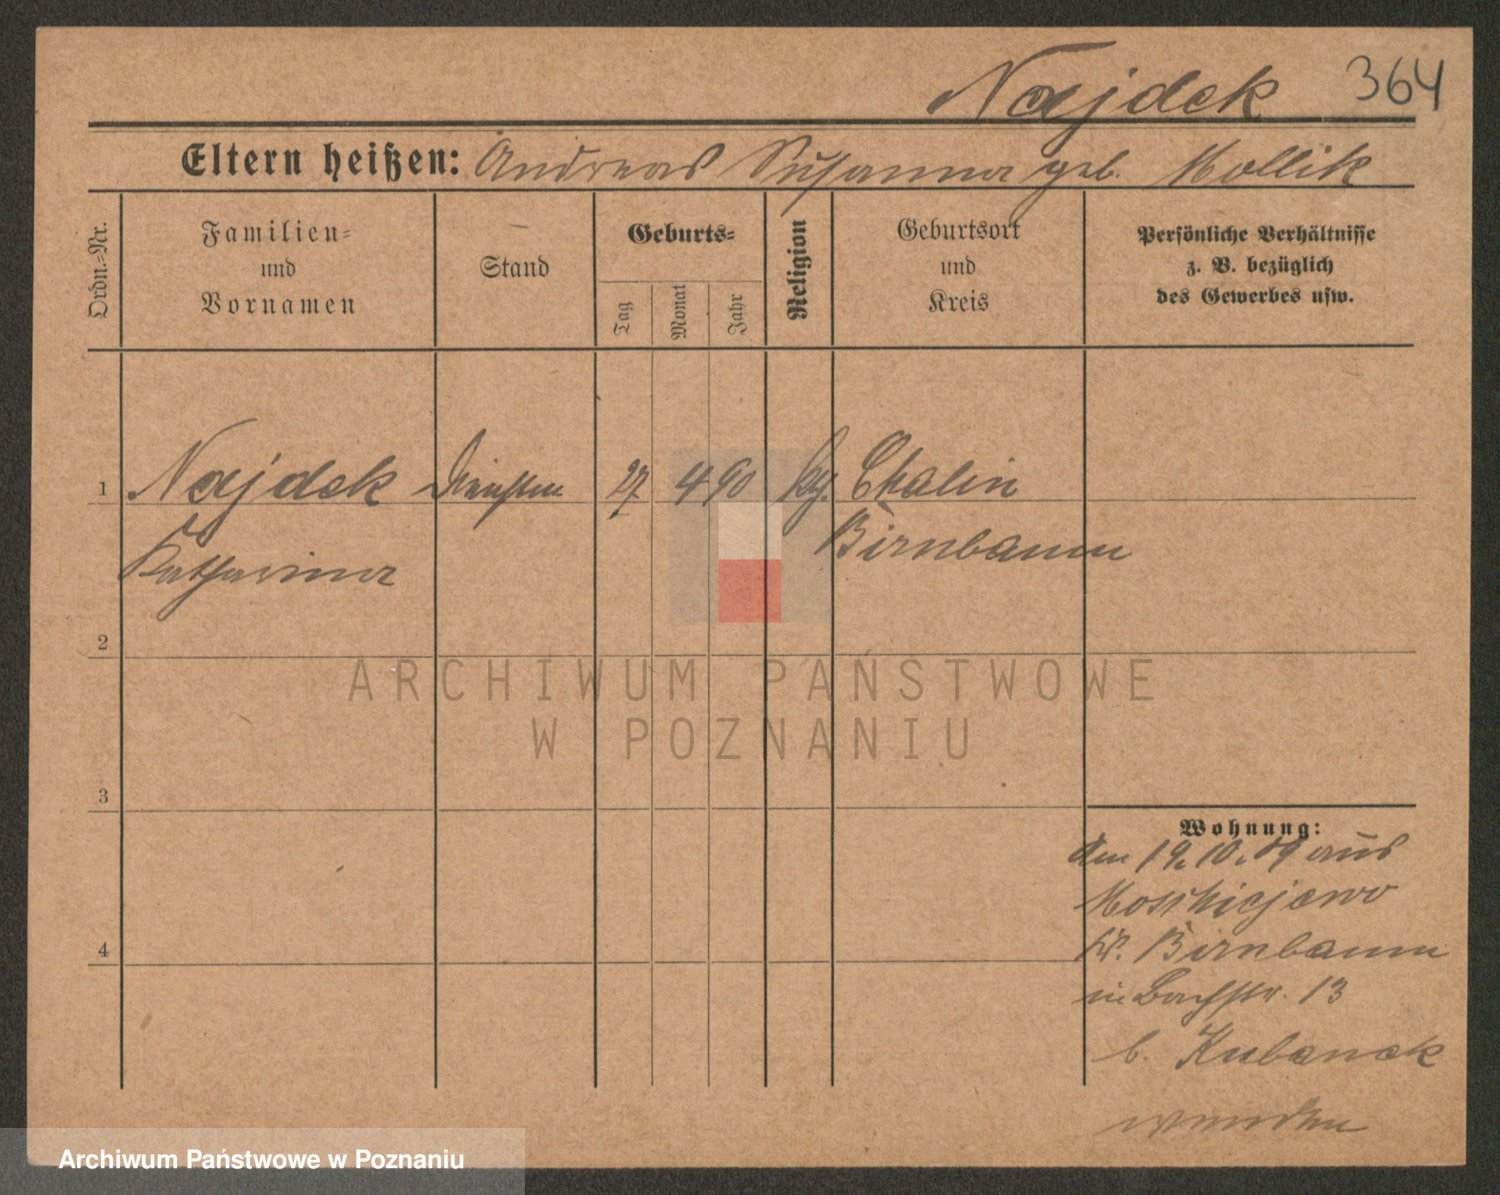 Najdek 364
Eltern heißen: Andreas Susanna geb. Mollik
Ordn.-Nr.
Familien-
und
Vornamen
Stand
Geburts-
Tag
Monat
Jahr
Religion
Geburtsort
und
Kreis
Persönliche Verhältnisse
z. B. bezüglich
des Gewerbes usw.
1 Najdek 27 4 90 Chalin
Katharina Birnbaum
2
3
4
Wohnung:
den 19.10.09 aus
Kr. Birnbaum
in Bachstr. 13
b. Kubanek
ARCHIWUM PAŃSTWOWE
W POZNANIU
Archiwum Państwowe w Poznaniu